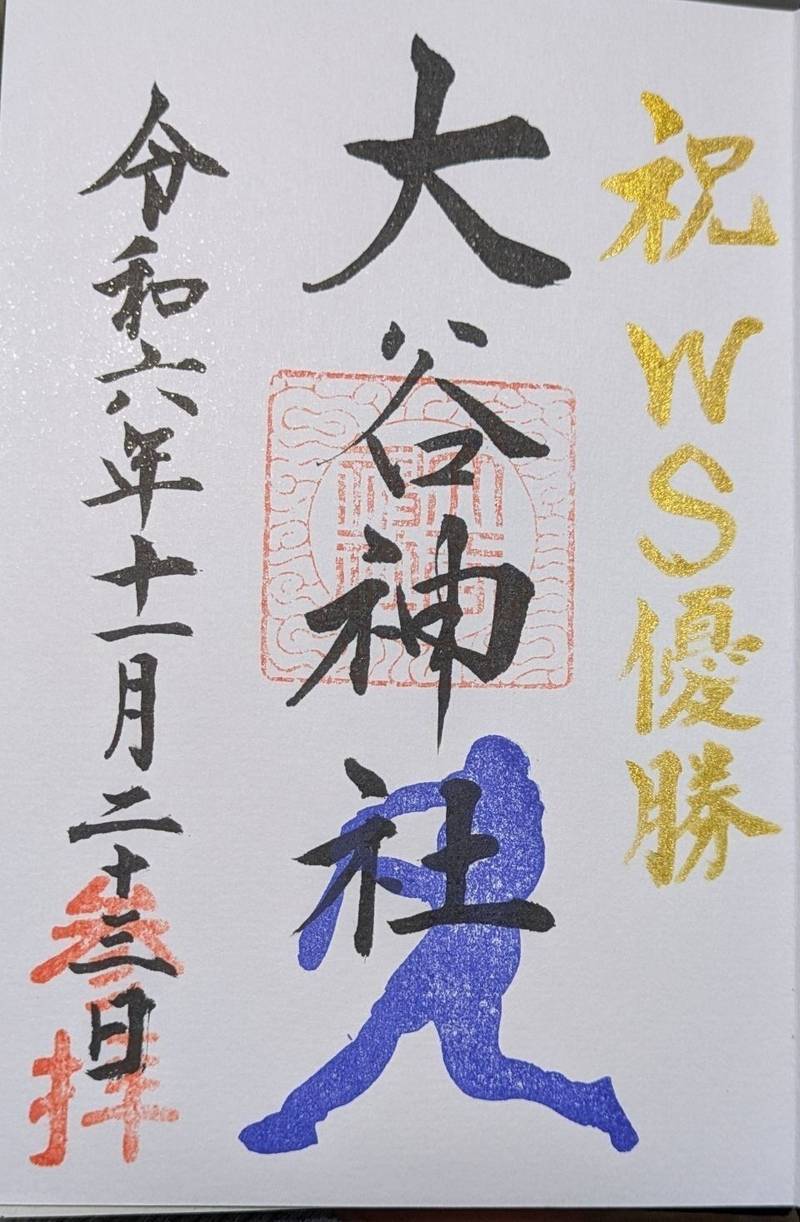 祝WS優勝
大谷神社
令和六年十一月二十三日
参拝